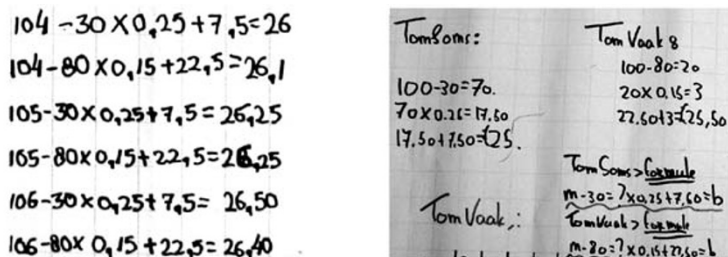 104-30x0,25+7,5=26
104-80x0,15+22,5=26,1
105-30x0,25+7,5=26,25
105-80x0,15+22,5=26,25
106-30x0,25+7,5= 26,50
106-80x0,15+22,5=26,40
Tom Soms:
100-30=70.
70x0.25=17.50
17.50+7.50=€25.
Tom Vaak:
100-80=20
20x0.15=3
22.50+3=€25,50
Tom Soms> formule
m-30=?x0,25+7,50=b
Tom Vaak> formule
m-80=?x0,15+22,50=b
Tom Vaak,: